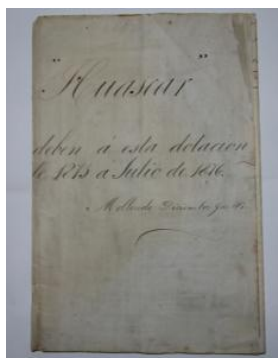 "Huascar"
deben á esta dotacion
de 1875 á Julio de 1876.
Mollendo Diciembre